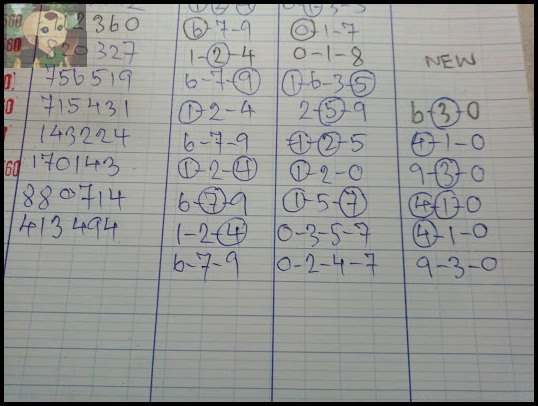 2360 6-7-9 0-1-7
820327 1-2-4 0-1-8
NEW
756519 6-7-9 1-6-3-5
715431 1-2-4 2-5-9 6-3-0
143224 6-7-9 1-2-5 4-1-0
560 170143 1-2-4 1-2-0 9-3-0
880714 6-7-9 1-5-7 4-1-0
413494 1-2-4 0-3-5-7 4-1-0
6-7-9 0-2-4-7 9-3-0